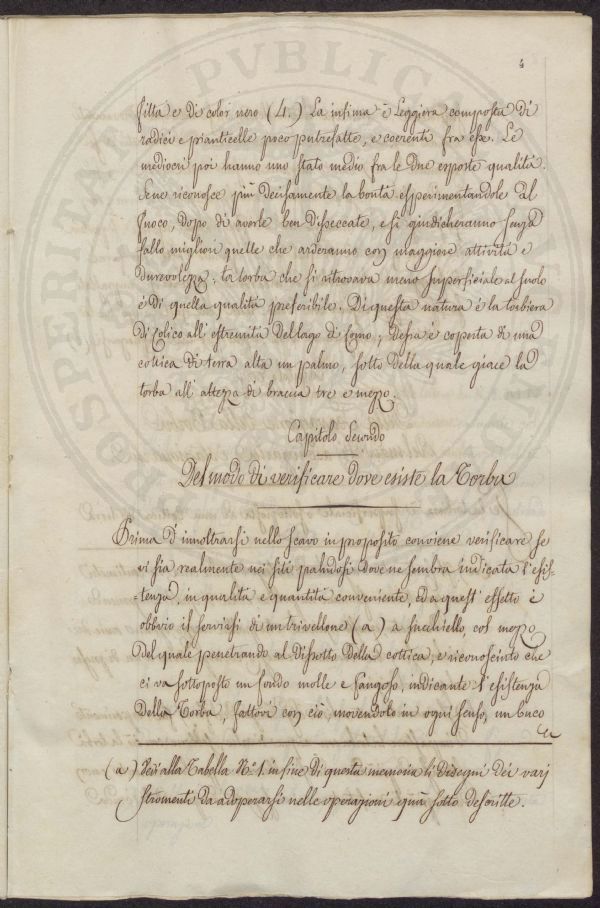 4
fitta e di color nero (4.) La infima è leggiera composta di
radici e pianticelle poco putrefatte, e coerenti fra esse. Le
mediocri poi hanno uno stato medio fra le due esposte qualità.
Sene riconosce più decisamente la bontà esperimentandole al
fuoco, dopo di averle ben disseccate, e si giudicheranno senza
fallo migliori quelle che arderanno con maggiore attività e
durevolezza; la torba che si ritrovava meno superficiale al suolo
è di quella qualità preferibile. Di questa natura è la torbiera
di Colico all'estremità del lago di Como; dessa è coperta di una
cottica di terra alta un palmo, sotto della quale giace la
torba all'altezza di braccia tre e mezzo.
Capitolo Secondo
Del modo di verificare dove esiste la Torba
Prima d'innoltrarsi nello scavo in proposito conviene verificare se
vi sia realmente nei siti paludosi dove ne sembra indicata l'esis-
-tenza, in qualità e quantità conveniente, ed a quest'effetto è
obbvio il servirsi di un trivellone (a) a suchiello, col mezzo
del quale penetrando al dissotto della cottica, e riconosciuto che
ci va sottoposto un fondo molle e fangoso, indicante l'esistenza
della Torba, fattovi con ciò, movendolo in ogni senso, un buco
(a) Vedi alla Tabella N.° 1. in fine di questa memoria li disegni dei varj
stromenti da adoperarsi nelle operazioni quì sotto descritte.
PROSPERITATI PUBLICAE